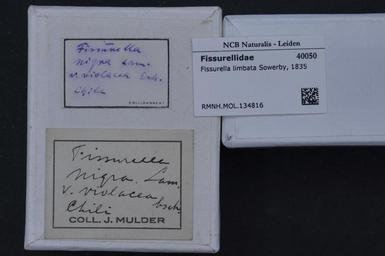 Fissurella
nigra Lam.
v. violacea Esch.
Chile
NCB Naturalis - Leiden
Fissurellidae 40050
Fissurella limbata Sowerby, 1835
RMNH.MOL.134816
Fissurella
nigra. Lam.
v. violacea
Esch.
Chili
COLL. J. MULDER